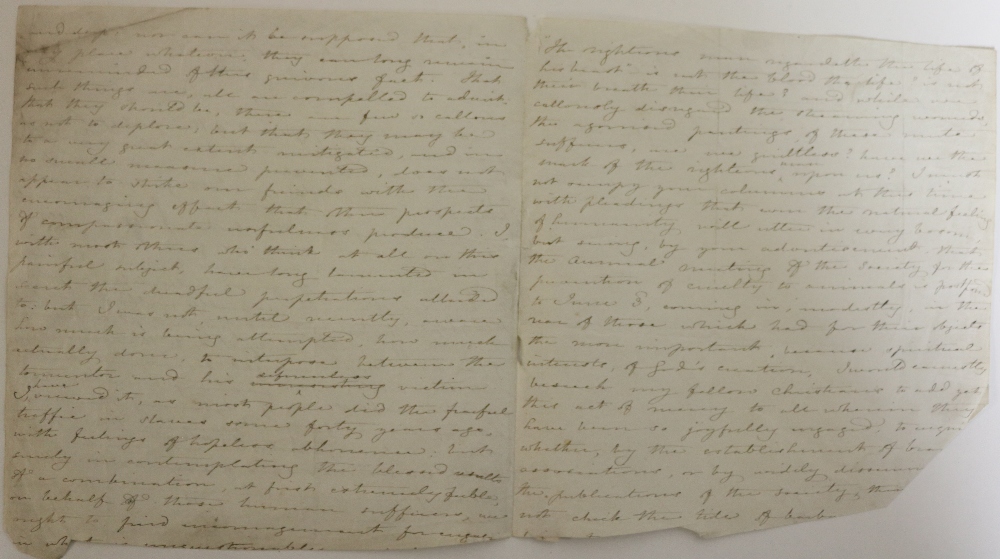 and sup: nor can it be supposed that, in
any place whatever, they can long remain
unreminded of this grievous fact. That
such things are, all are compelled to admit,
that they should be, there are few so callous
as not to deplore; but that they may be
to a very great extent mitigated, and in
no small measure prevented, does not
appear to strike our friends with the
encouraging effect that other prospects
of compassionate usefulness produce. I
with most others who think at all on this
painful subject, have long lamented in
secret the dreadful perpetrations alluded
to: but I was not until recently, aware
how much is being attempted, how much
actually done, to interpose between the
tormentor and his speechless unresisting victim
I have viewed it, as most people did the fearful
traffic in slaves some forty years ago,
with feelings of hopeless abhorrence; but
surely in contemplating the blessed results
of a combination, at first extremely feeble,
on behalf of those human sufferers, we
ought to find encouragement for
in what is unquestionably
"The righteous man regardeth the life of
his beast" is not the blood the life is not
their breath their life? and while we
callously disregard the streaming wounds,
the agonised pantings of these mute
sufferers, are we guiltless? have we the
mark of the righteous man upon us? I must
not occupy your columns at this time
with pleadings that even the natural feeling
of humanity will utter in every bosom;
but seeing, by your advertisement that
the Annual meeting of the Society for the
prevention of cruelty to animals is postponed
to June 3, coming in, modestly, in the
rear of those which had for their objects
the more important, because spiritual
interests, of God's creation, I would earnestly
beseech my fellow Christians to add yet
this act of mercy to all wherein they
have been so joyfully engaged; to inquire
whether, by the establishment of
associations, or by widely
the publications of the Society,
not check the tide of